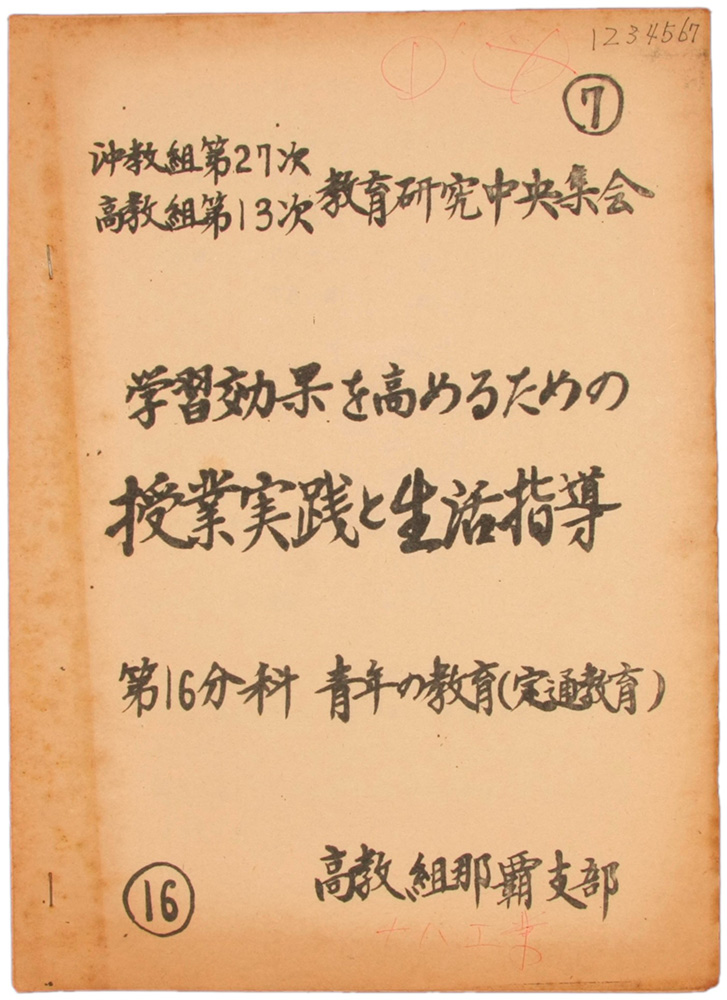 1234567
①
⑦
沖教組第27次
高教組第13次 教育研究中央集会
学習効果を高めるための
授業実践と生活指導
第16分科 青年の教育(定通教育)
⑯
高教組那覇支部
ナハ工業